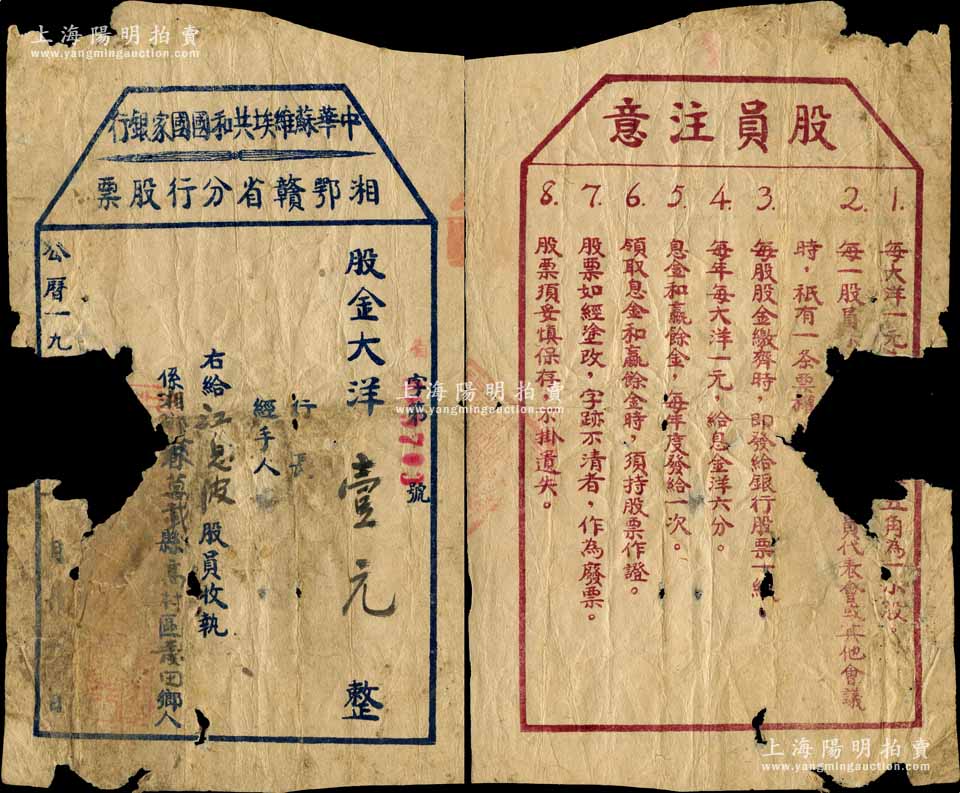 上海陽明拍賣
www.yangmingauction.com
中華蘇維埃共和國國家銀行
湘鄂贛省分行股票
字第703號
股金大洋壹元整
行長
經手人
右給江 波股員收執
係湘鄂 萬載縣高村區 田鄉人
公曆一九
月 日
上海陽明拍賣
www.yangmingauction.com
股員注意
1. 每大洋一元 五角為一小股。
2. 每一股員 員代表會或其他會議
時，祇有一条票
3. 每股股金繳齊時，即發給銀行股票一
4. 每年每大洋一元，給息金洋六分。
5. 息金和贏餘金，每年度發給一次。
6. 領取息金和贏餘金時，須持股票作證。
7. 股票如經塗改，字跡不清者，作為廢票。
8. 股票須妥慎保存，不掛遺失。
上海陽明拍賣
www.yangmingauction.com